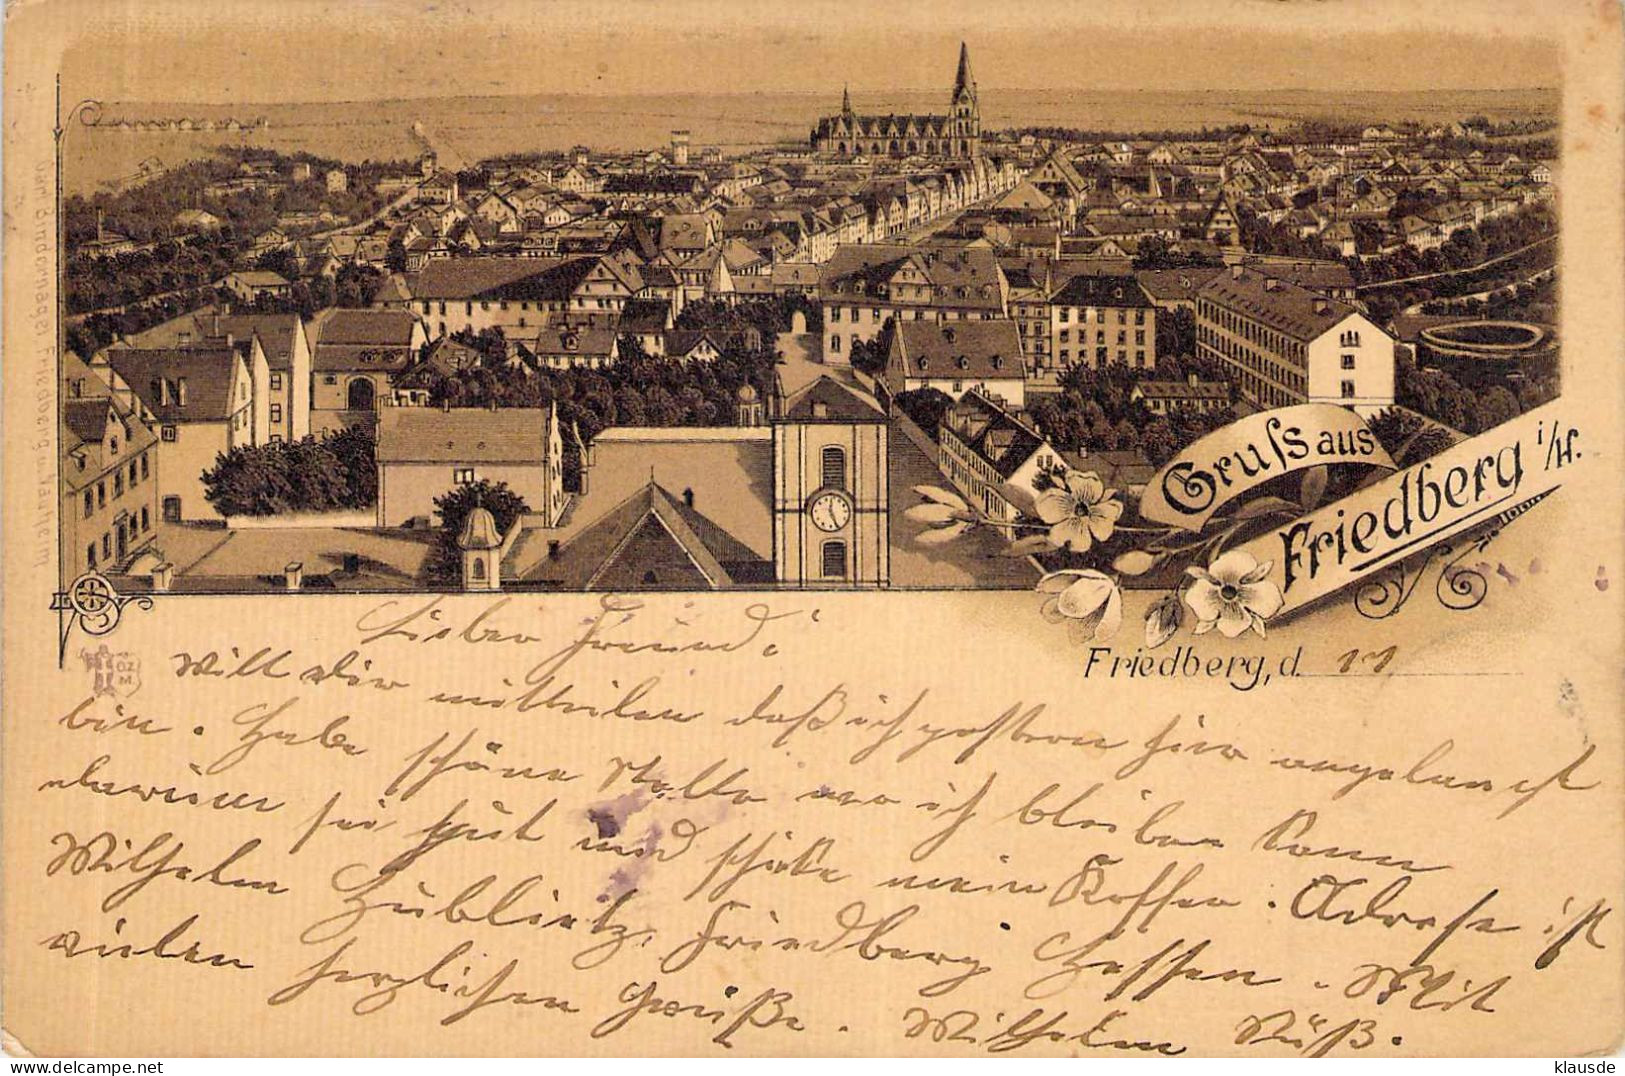 Gruss aus
Friedberg i/H.
Friedberg, d. 17.
Lieber Freund!
Will Dir mitteilen daß ich gestern hier angelangt
bin. Habe schöne Stelle wo ich bleiben kann
sei gut und schicke mein Koffer. Adresse ist
Wilhelm Friedberg Hessen. Mit
vielen herzlichen Grüße. Wilhelm Süß.
O.Z.
M.
Gem. Bindernagel Friedberg u. Nauheim.
klausde